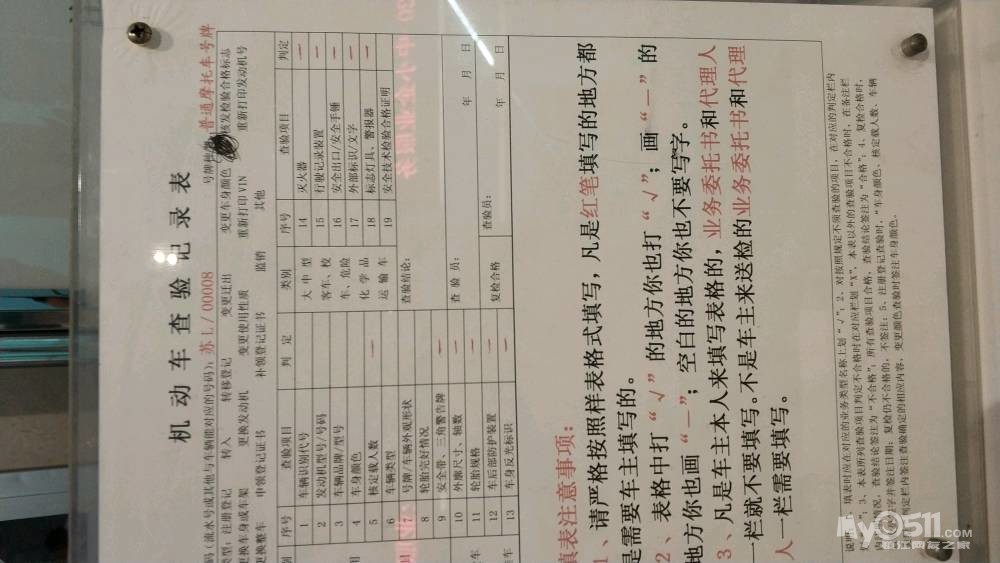 机动车查验记录表
码(流水号或其他与车辆能对应的号码):苏L/00008 号牌种类:普通摩托车号牌
类型:注册登记 转入 转移登记 变更迁出 变更车身颜色 核发检验合格标志
更换车身或车架 更换发动机 变更使用性质 重新打印VIN 重新打印发动机号
更换整车 申领登记证书 补领登记证书 监销 其他
别 序号 查验项目 判定 类别 序号 查验项目 判定
1 车辆识别代号
2 发动机型号/号码
3 车辆品牌/型号
4 车身颜色
5 核定载人数 —
6 车辆类型
7 号牌/车辆外观形状
8 轮胎完好情况
9 安全带、三角警告牌 —
10 外廓尺寸、轴数 —
11 轮胎规格 —
12 车后部防护装置 —
13 车身反光标识 —
大中型客车、校车、危险化学品运输车
14 灭火器 —
15 行驶记录装置 —
16 安全出口/安全手锤 —
17 外部标识/文字 —
18 标志灯具、警报器 —
19 安全技术检验合格证明
查验结论:
查验员: 年 月 日
复检合格 查验员: 年 月 日
填表注意事项:
1、请严格按照样表格式填写,凡是红笔填写的地方都
是需要车主填写的。
2、表格中打“√”的地方你也打“√”;画“—”的
地方你也画“—”;空白的地方你也不要写字。
3、凡是车主本人来填写表格的,业务委托书和代理人
一栏就不要填写。不是车主来送检的业务委托书和代理
人一栏需要填写。
说明:1、填表时应在对应的业务类型名称上划“√”;2、对按照规定不须查验的项目,在对应的判定栏内
3、本表所列查验项目判定不合格时在对应栏划“X”,本表以外的查验项目不合格时,在备注栏
情况,查验结论签注为“不合格”;所有查验项目合格,查验结论签注为“合格”;4、复检合格时,
字并签注日期;复检仍不合格的,不签注;5、注册登记查验时,“车身颜色、核定载人数、车辆
判定栏内签注查验确定的相应内容,变更颜色查验时签注车身颜色。
My0511.COM
镇江网友之家